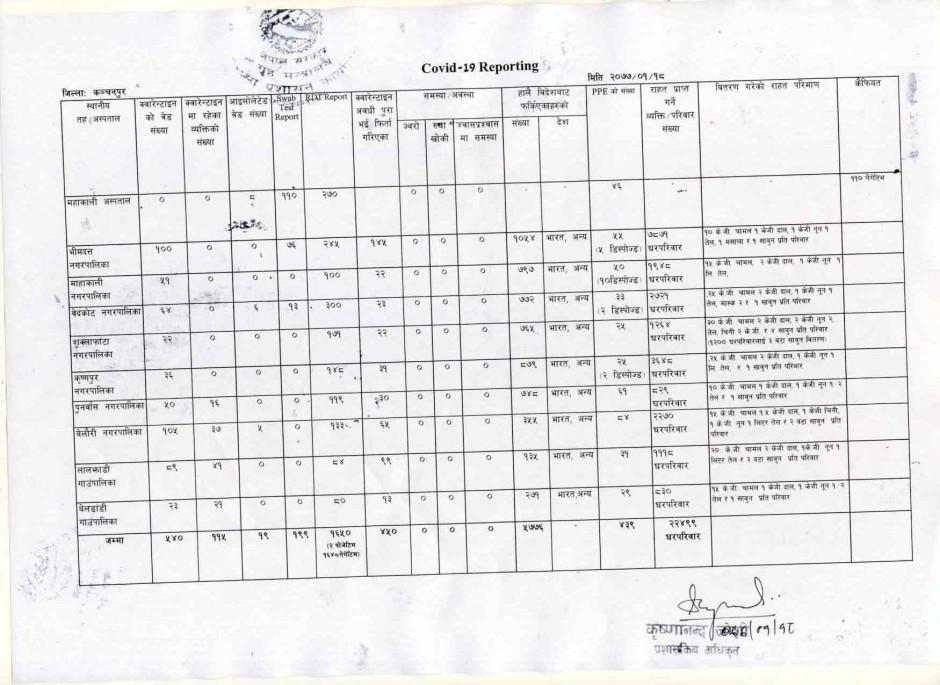 नेपाल सरकार
गृह मन्त्रालय
प्रशासन कार्या
Covid-19 Reporting
मिति २०७७/०१/१८
जिल्ला: कञ्चनपुर
स्थानीय तह/अस्पताल | क्वारेन्टाइन को बेड संख्या | क्वारेन्टाइन मा रहेका व्यक्तिको संख्या | आइसोलेटेड बेड संख्या | Swab Test Report | RDT Report | क्वारेन्टाइन अवधी पुरा भई फिर्ता गरिएका | समस्या/अवस्था | हालै विदेशबाट फर्किएकाहरुको | PPE को संख्या | राहत प्राप्त गर्ने व्यक्ति/परिवार संख्या | वितरण गरेको राहत परिमाण | कैफियत
ज्वरो | रुघा खोकी | श्वासप्रश्वास मा समस्या | संख्या | देश
महाकाली अस्पताल | ० | ० | ८ | ११० | २७० | ० | ० | ० | ४६ | ११० नेगेटिभ
भीमदत्त नगरपालिका | १०० | ० | ० | ७६ | २४५ | १४५ | ० | ० | ० | १०५४ | भारत, अन्य | ५५ (५ डिस्पोज्ड) | ७८७१ घरपरिवार | १० के.जी. चामल १ केजी दाल, १ केजी नून १ तेल, १ मसला र १ साबुन प्रति परिवार
माहाकाली नगरपालिका | ५१ | ० | ० | ० | १०० | २२ | ० | ० | ० | ७९७ | भारत, अन्य | ५० (१०डिस्पोज्ड) | १९४८ घरपरिवार | १५ के.जी. चामल, २ केजी दाल, १ केजी नून १ लि. तेल,
बेदकोट नगरपालिका | ६४ | ० | ६ | १३ | ३०० | २३ | ० | ० | ० | ७७२ | भारत, अन्य | ३३ (२ डिस्पोज्ड) | २७२१ घरपरिवार | २५ के.जी. चामल २ केजी दाल, १ केजी नून १ तेल, मास्क २ र १ साबुन प्रति परिवार
शुक्लाफाँटा नगरपालिका | २२ | ० | ० | ० | १७१ | २२ | ० | ० | ० | ७६५ | भारत, अन्य | २५ | १२६४ घरपरिवार | ३० के.जी. चामल २ केजी दाल, २ केजी नून २, तेल, चिनी २ के.जी. र ४ साबुन प्रति परिवार (१२०० घरपरिवारलाई ३ वटा साबुन वितरण)
कृष्णपुर नगरपालिका | ३६ | ० | ० | ० | १४८ | ३१ | ० | ० | ० | ८७१ | भारत, अन्य | २५ (२ डिस्पोज्ड) | ३६४८ घरपरिवार | २५ के.जी. चामल २ केजी दाल, १ केजी नून १ लि. तेल, र १ साबुन प्रति परिवार
पुनर्वास नगरपालिका | ५० | १६ | ० | ० | ११९ | ३० | ० | ० | ० | ७४८ | भारत, अन्य | ६१ | ८२९ घरपरिवार | १० के.जी. चामल १ केजी दाल, १ केजी नून १/२ तेल र १ साबुन प्रति परिवार
बेलौरी नगरपालिका | १०५ | ३७ | ५ | ० | १३३ | ६५ | ० | ० | ० | ३५५ | भारत, अन्य | ८४ | २२७० घरपरिवार | १५ के.जी. चामल १.५ केजी दाल, १ केजी चिनी, १ के.जी. नून १ लिटर तेल र २ वटा साबुन प्रति परिवार
लालझाडी गाउंपालिका | ८९ | ४१ | ० | ० | ८४ | ९९ | ० | ० | ० | १३५ | भारत, अन्य | ३१ | १११८ घरपरिवार | २० के.जी. चामल २ केजी दाल, १के.जी. नून १ लिटर तेल र २ वटा साबुन प्रति परिवार
बेलडांडी गाउंपालिका | २३ | २१ | ० | ० | ८० | १३ | ० | ० | ० | २७१ | भारत,अन्य | २९ | ८३० घरपरिवार | १५ के.जी. चामल १ केजी दाल, १ केजी नून १/२ तेल र १ साबुन प्रति परिवार
जम्मा | ५४० | ११५ | १९ | १९९ | १६५० (२ पोजेटिभ १६४८नेगेटिभ) | ४५० | ० | ० | ० | ५७७६ | ४३९ | २२४९९ घरपरिवार
कृष्णानन्द जोशी
०१/१८
प्रशासकिय अधिकृत